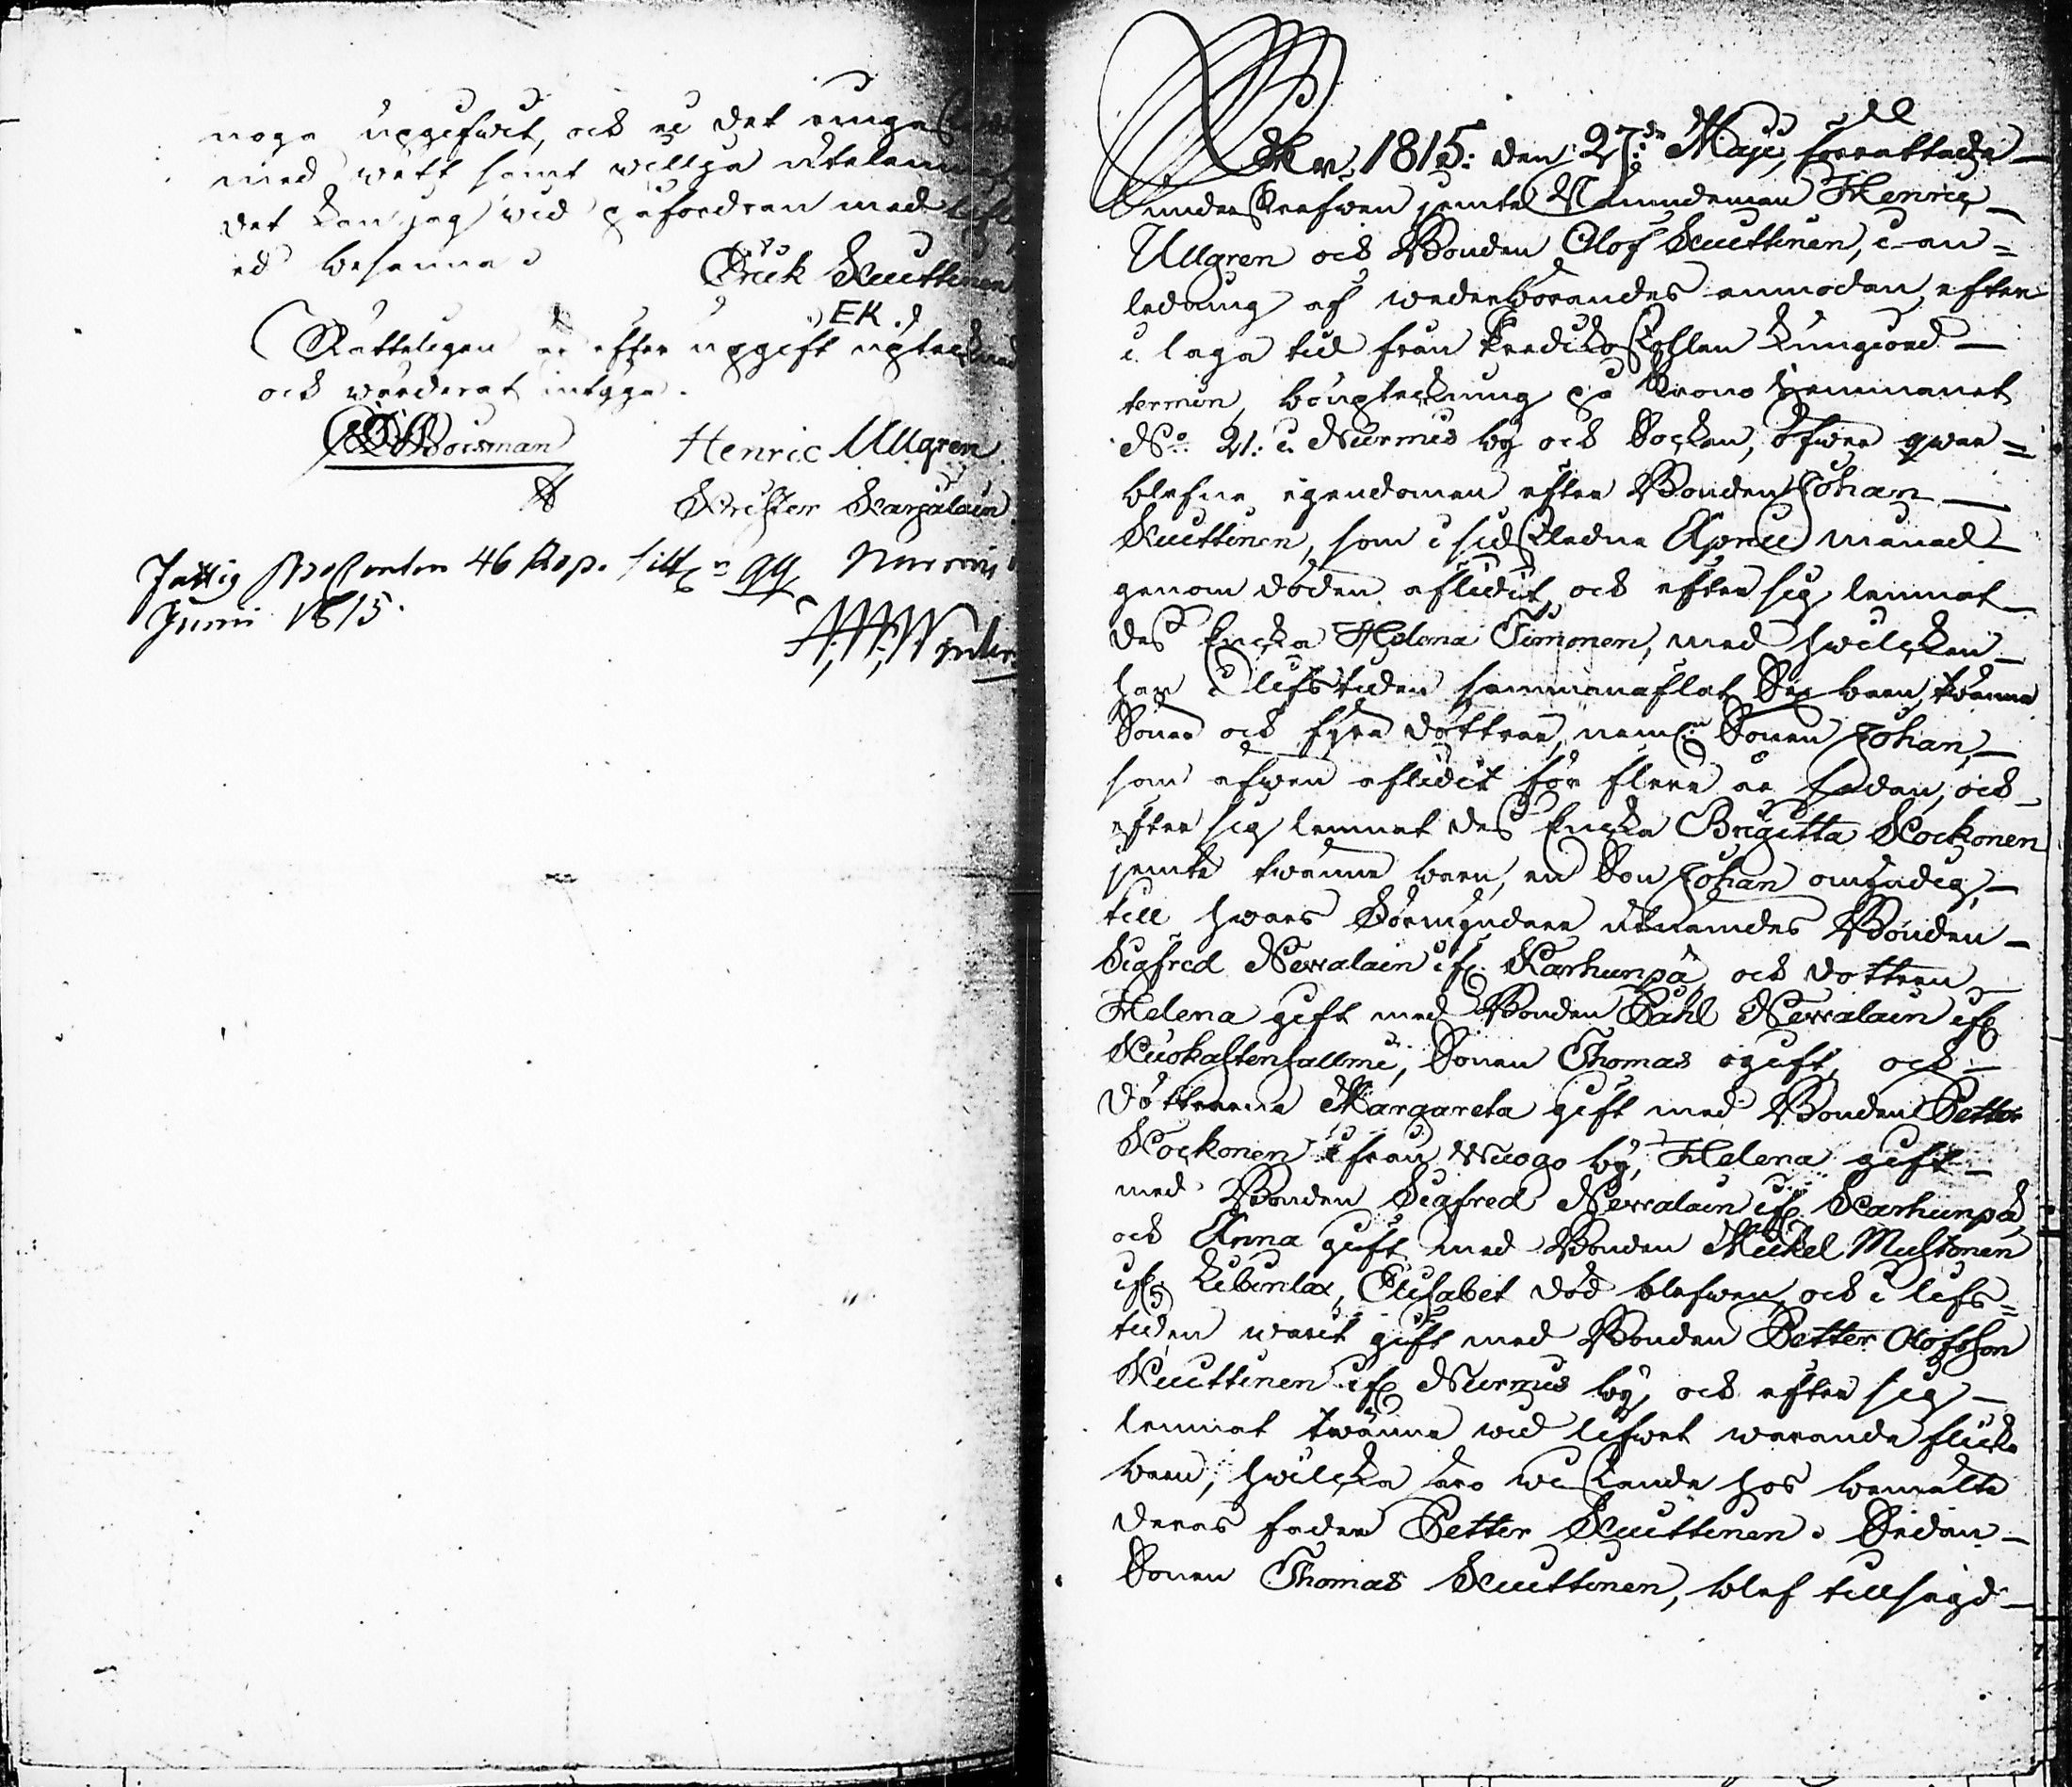 noga upgifwit, och ei det ringaste
med wett samt wilja utelemnat
det kan jag wid påfordran med lifl.
ed besanna
Erick Kuittinen
EK.
Rätteligen är efter upgift uptecknad
och wärderat intyga.
Boisman Henric Ullgren
Krister Karjalain
Fattig Procenten 46 Kop. Nurmis
Junii 1815.
År 1815: den 27:de Maji, förrättade
underskrefwen jemte Nämndeman Henric
Ullgren och Bonden Olof Kuittinen, i an=
ledning af wederbörandes anmodan, efter
i laga tid från Predikostohlen kungiord
termin, bouptekning på Krono hemmanet
No: 21: i Nurmis by och Socken, öfwer qwar=
blefne egendomen efter Bonden Johan
Kuittinen, som i sidstledne April månad
genom döden aflidit och efter sig lemnat
des Encka Helena Timonen, med hwilcken
han i lifstiden sammanaflat Sex barn, twänne
Söner och fyra döttrar, neml: Sonen Johan,
som äfwen aflidit för flere år sedan, och
efter sig lemnat des Encka Brigitta Kockonen
jemte twänne barn, en Son Johan omyndig,
till hwars Förmyndare utnämdes Bonden
Sigfred Newalain if: Karhunpä och dottren
Helena gift med Bonden Påhl Newalain if:
Kuokastensallmi, Sonen Thomas ogift, och
döttrarne Margareta gift med Bonden Petter
Kockonen ifrån Wuogo by, Helena gift
med Bonden Sigfred Newalain if: Karhunpä
och Anna gift med Bonden Mickel Mustonen
if: Libinlax, Elisabet död blefwen och i lifs=
tiden warit gift med Bonden Petter Olofsson
Kuittinen if: Nurmis by, och efter sig
lemnat twänne wid lifwet warande flicke
barn, hwilcka äro wistande hos bemälte
deras fader Petter Kuittinen. Sedan
Sonen Thomas Kuittinen, blef tillsagd